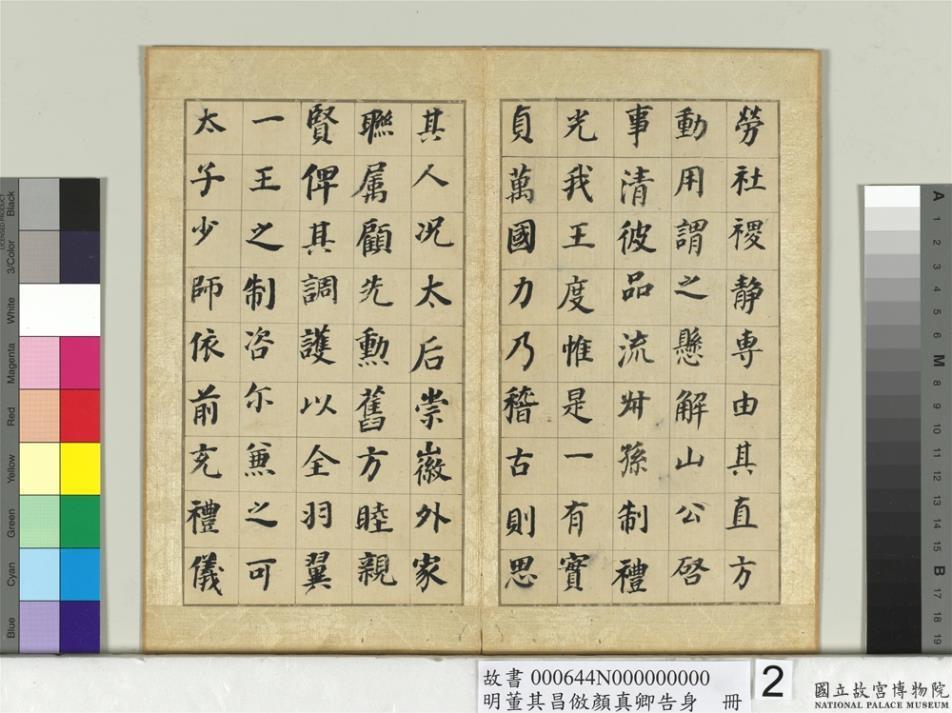 勞社禝静専由其直方
動用謂之懸解山公啓
事清彼品流尗孫制禮
光我王度惟是一有實
貞萬國力乃稽古則思
其人况太后崇徽外家
聮属顧先勲舊方睦親
賢俾其調護以全羽翼
一王之制咨尓兼之可
太子少師依前充禮儀
故書 000644N000000000
明董其昌倣顏真卿告身 冊
2
國立故宮博物院
NATIONAL PALACE MUSEUM
Black
3/Color
White
Magenta
Red
Yellow
Green
Cyan
Blue
A 1 2 3 4 5 6 M 8 9 10 11 12 13 14 15 B 17 18 19